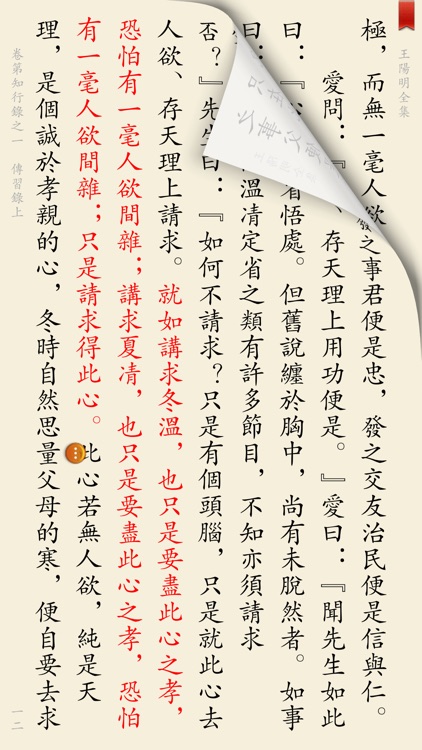 王陽明全集
極，而無一毫人欲發之事君便是忠，發之交友治民便是信與仁。
愛問：『、存天理上用功便是。』愛曰：『聞先生如此
曰：『省悟處。但舊說纏於胸中，尚有未脫然者。如事
曰：溫凊定省之類有許多節目，不知亦須請求
否？』先生曰：『如何不請求？只是有個頭腦，只是就此心去
人欲、存天理上請求。就如講求冬溫，也只是要盡此心之孝，
恐怕有一毫人欲間雜；講求夏凊，也只是要盡此心之孝，恐怕
有一毫人欲間雜；只是請求得此心。此心若無人欲，純是天
理，是個誠於孝親的心，冬時自然思量父母的寒，便自要去求
卷第知行錄之一 傳習錄上
一二